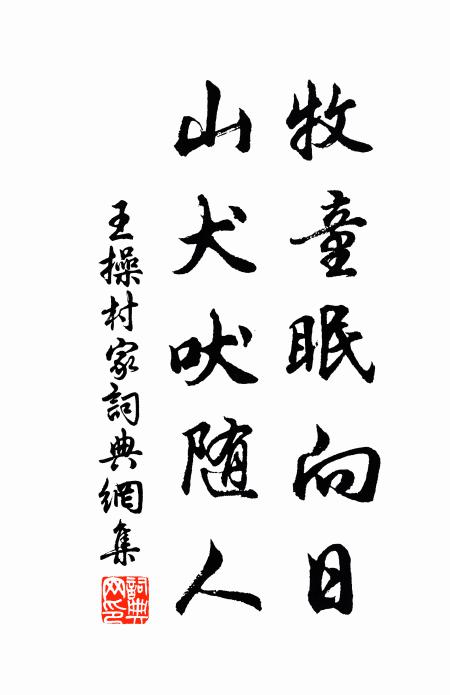 牧童眠向日
山犬吠随人
王操村家詞典網集
詞典
网印